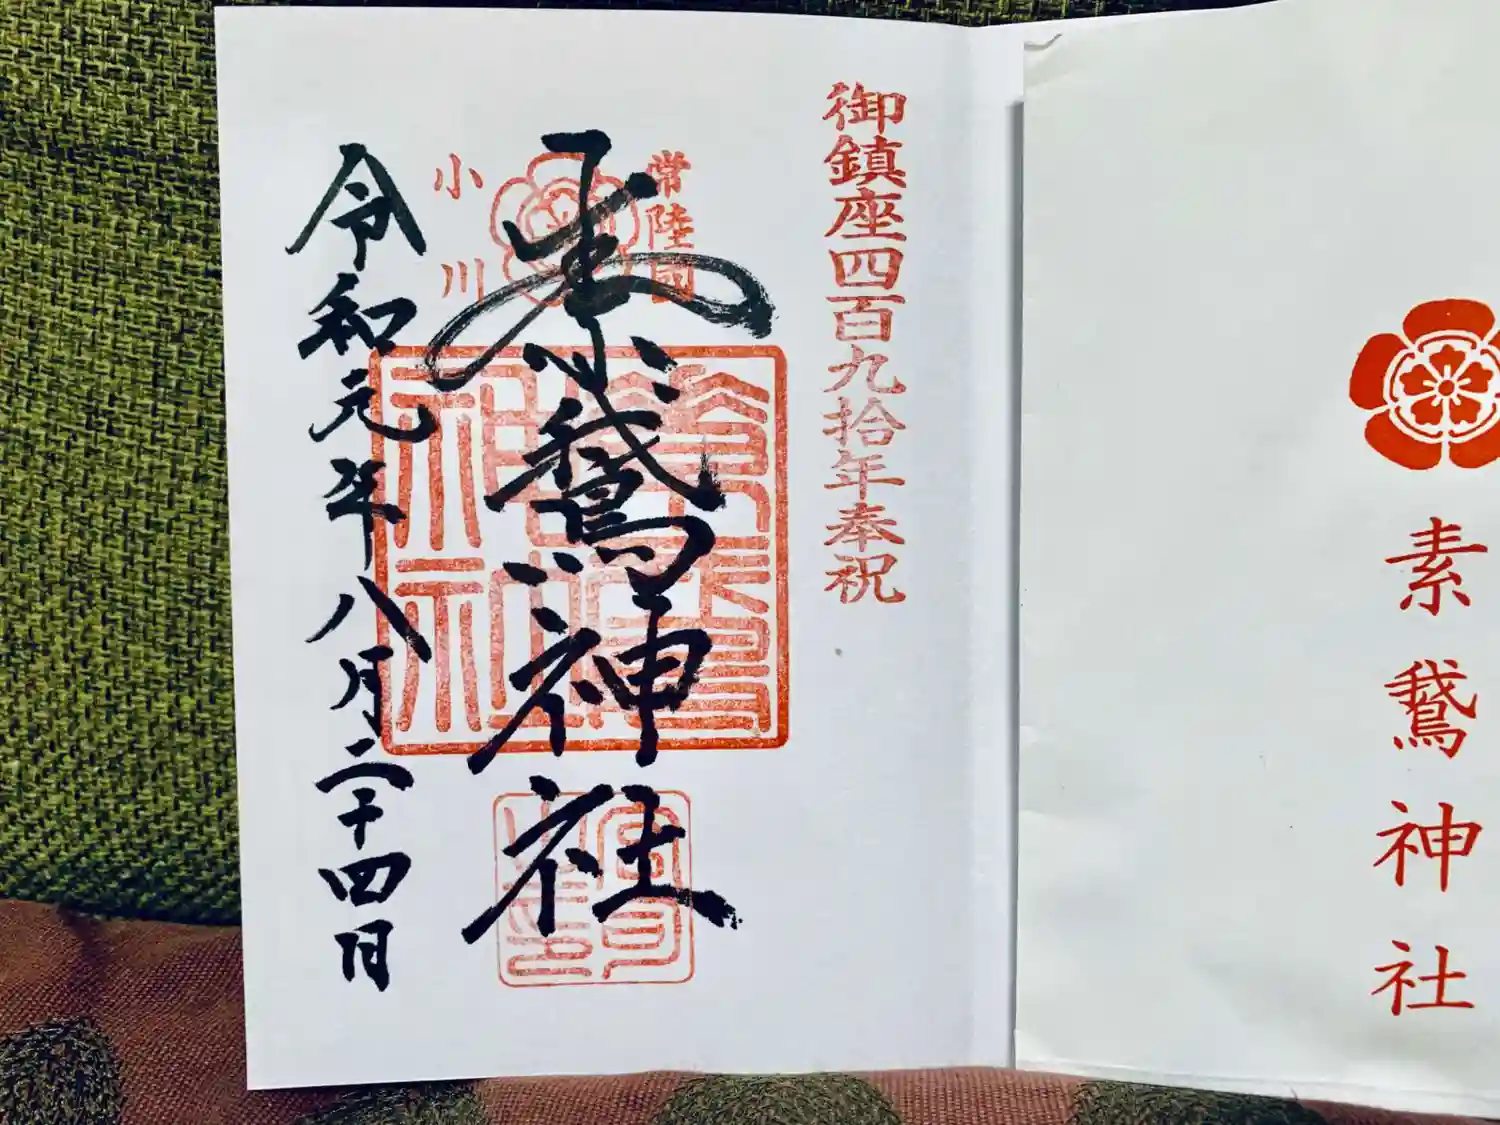 素鵞神社
御鎮座四百九拾年奉祝
常陸國
小川
素鵞神社
令和元年八月二十四日